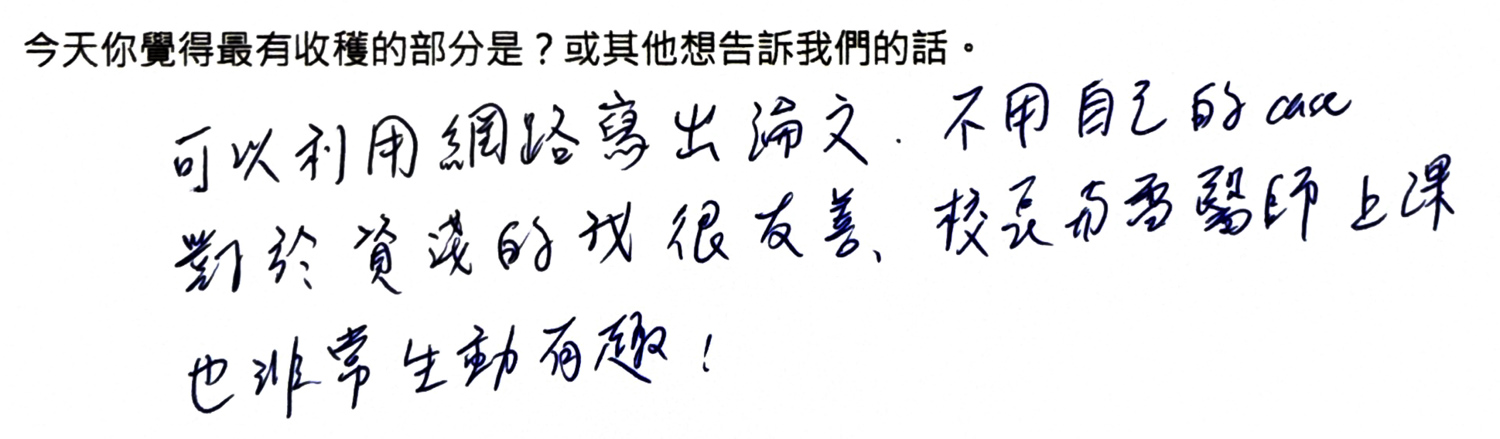 今天你覺得最有收穫的部分是？或其他想告訴我們的話。
可以利用網路寫出論文. 不用自己的case
對於資淺的我很友善、校長與雷醫師上課
也非常生動有趣！